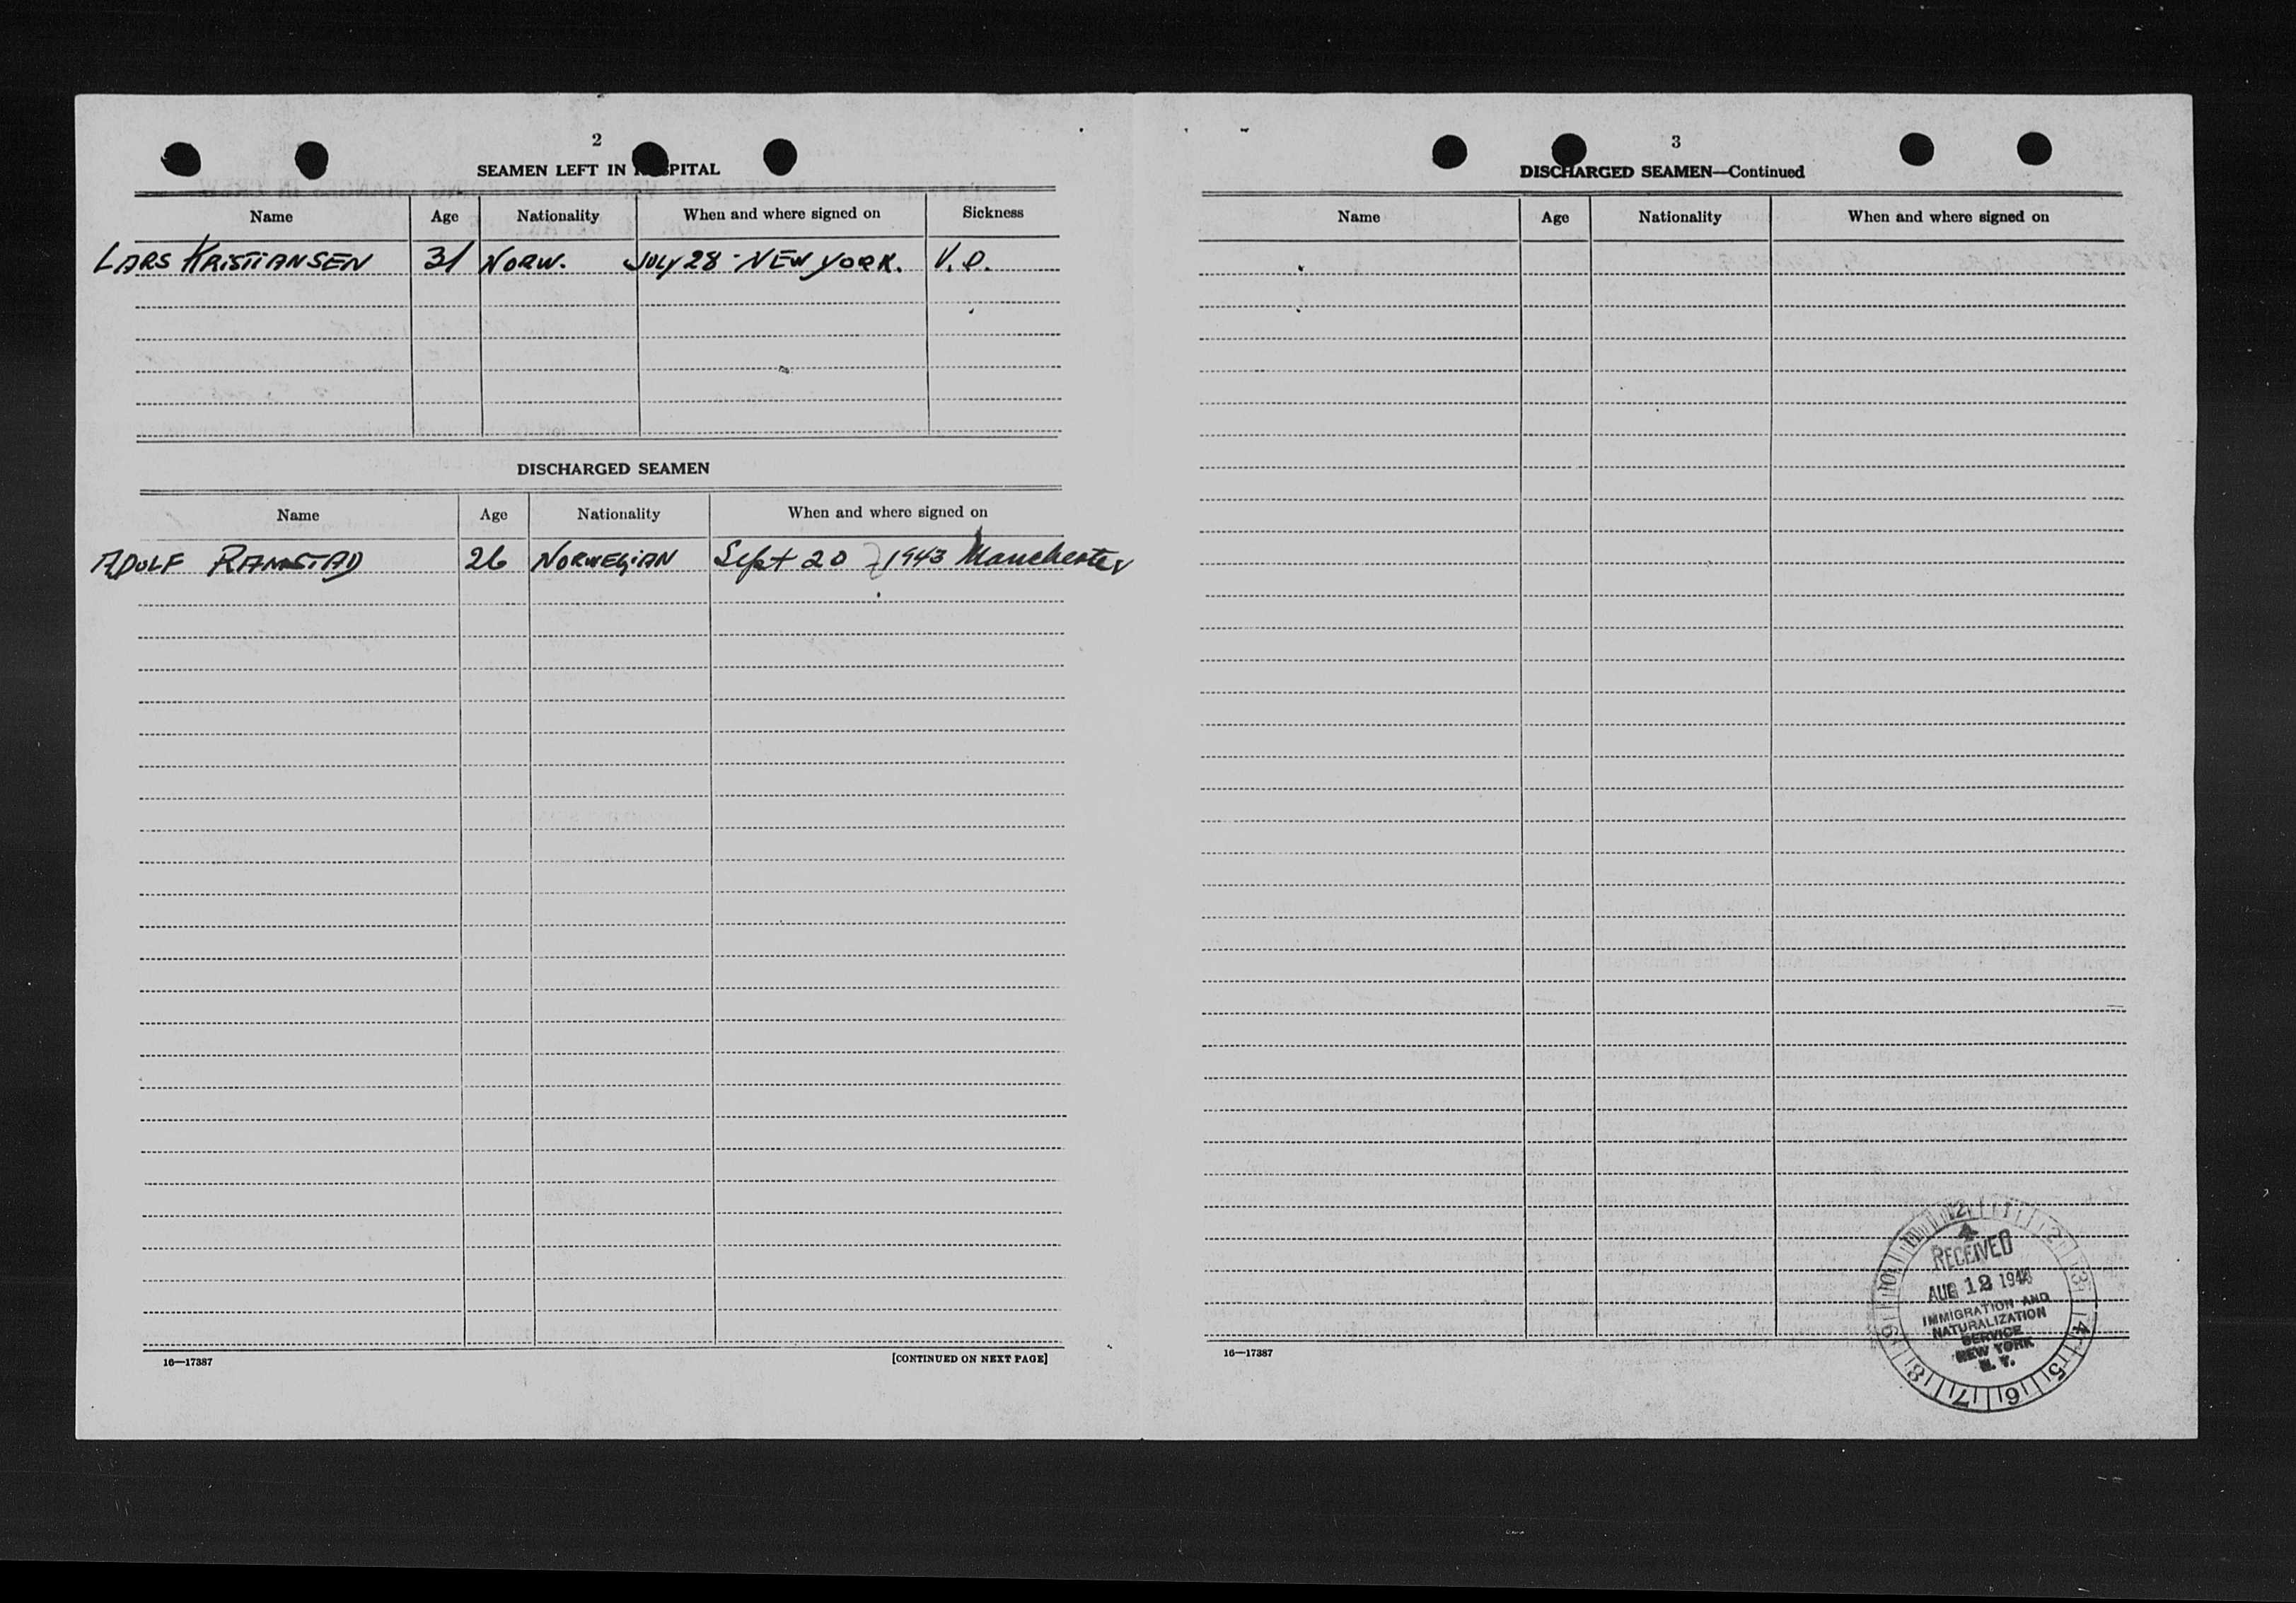 2
SEAMEN LEFT IN HOSPITAL
Name Age Nationality When and where signed on Sickness
LARS KRISTIANSEN 31 NORW. JULY 28 - NEW YORK. V.D.
DISCHARGED SEAMEN
Name Age Nationality When and where signed on
ADOLF RAMSTAD 26 NORWEGIAN Sept 20 1943 Manchester
16—17387 [CONTINUED ON NEXT PAGE]
3
DISCHARGED SEAMEN—Continued
Name Age Nationality When and where signed on
16—17387
12 1 2 3 4 5 6 7 8 9 10 11
RECEIVED
AUG 12
IMMIGRATION AND
NATURALIZATION
SERVICE
NEW YORK
N. Y.